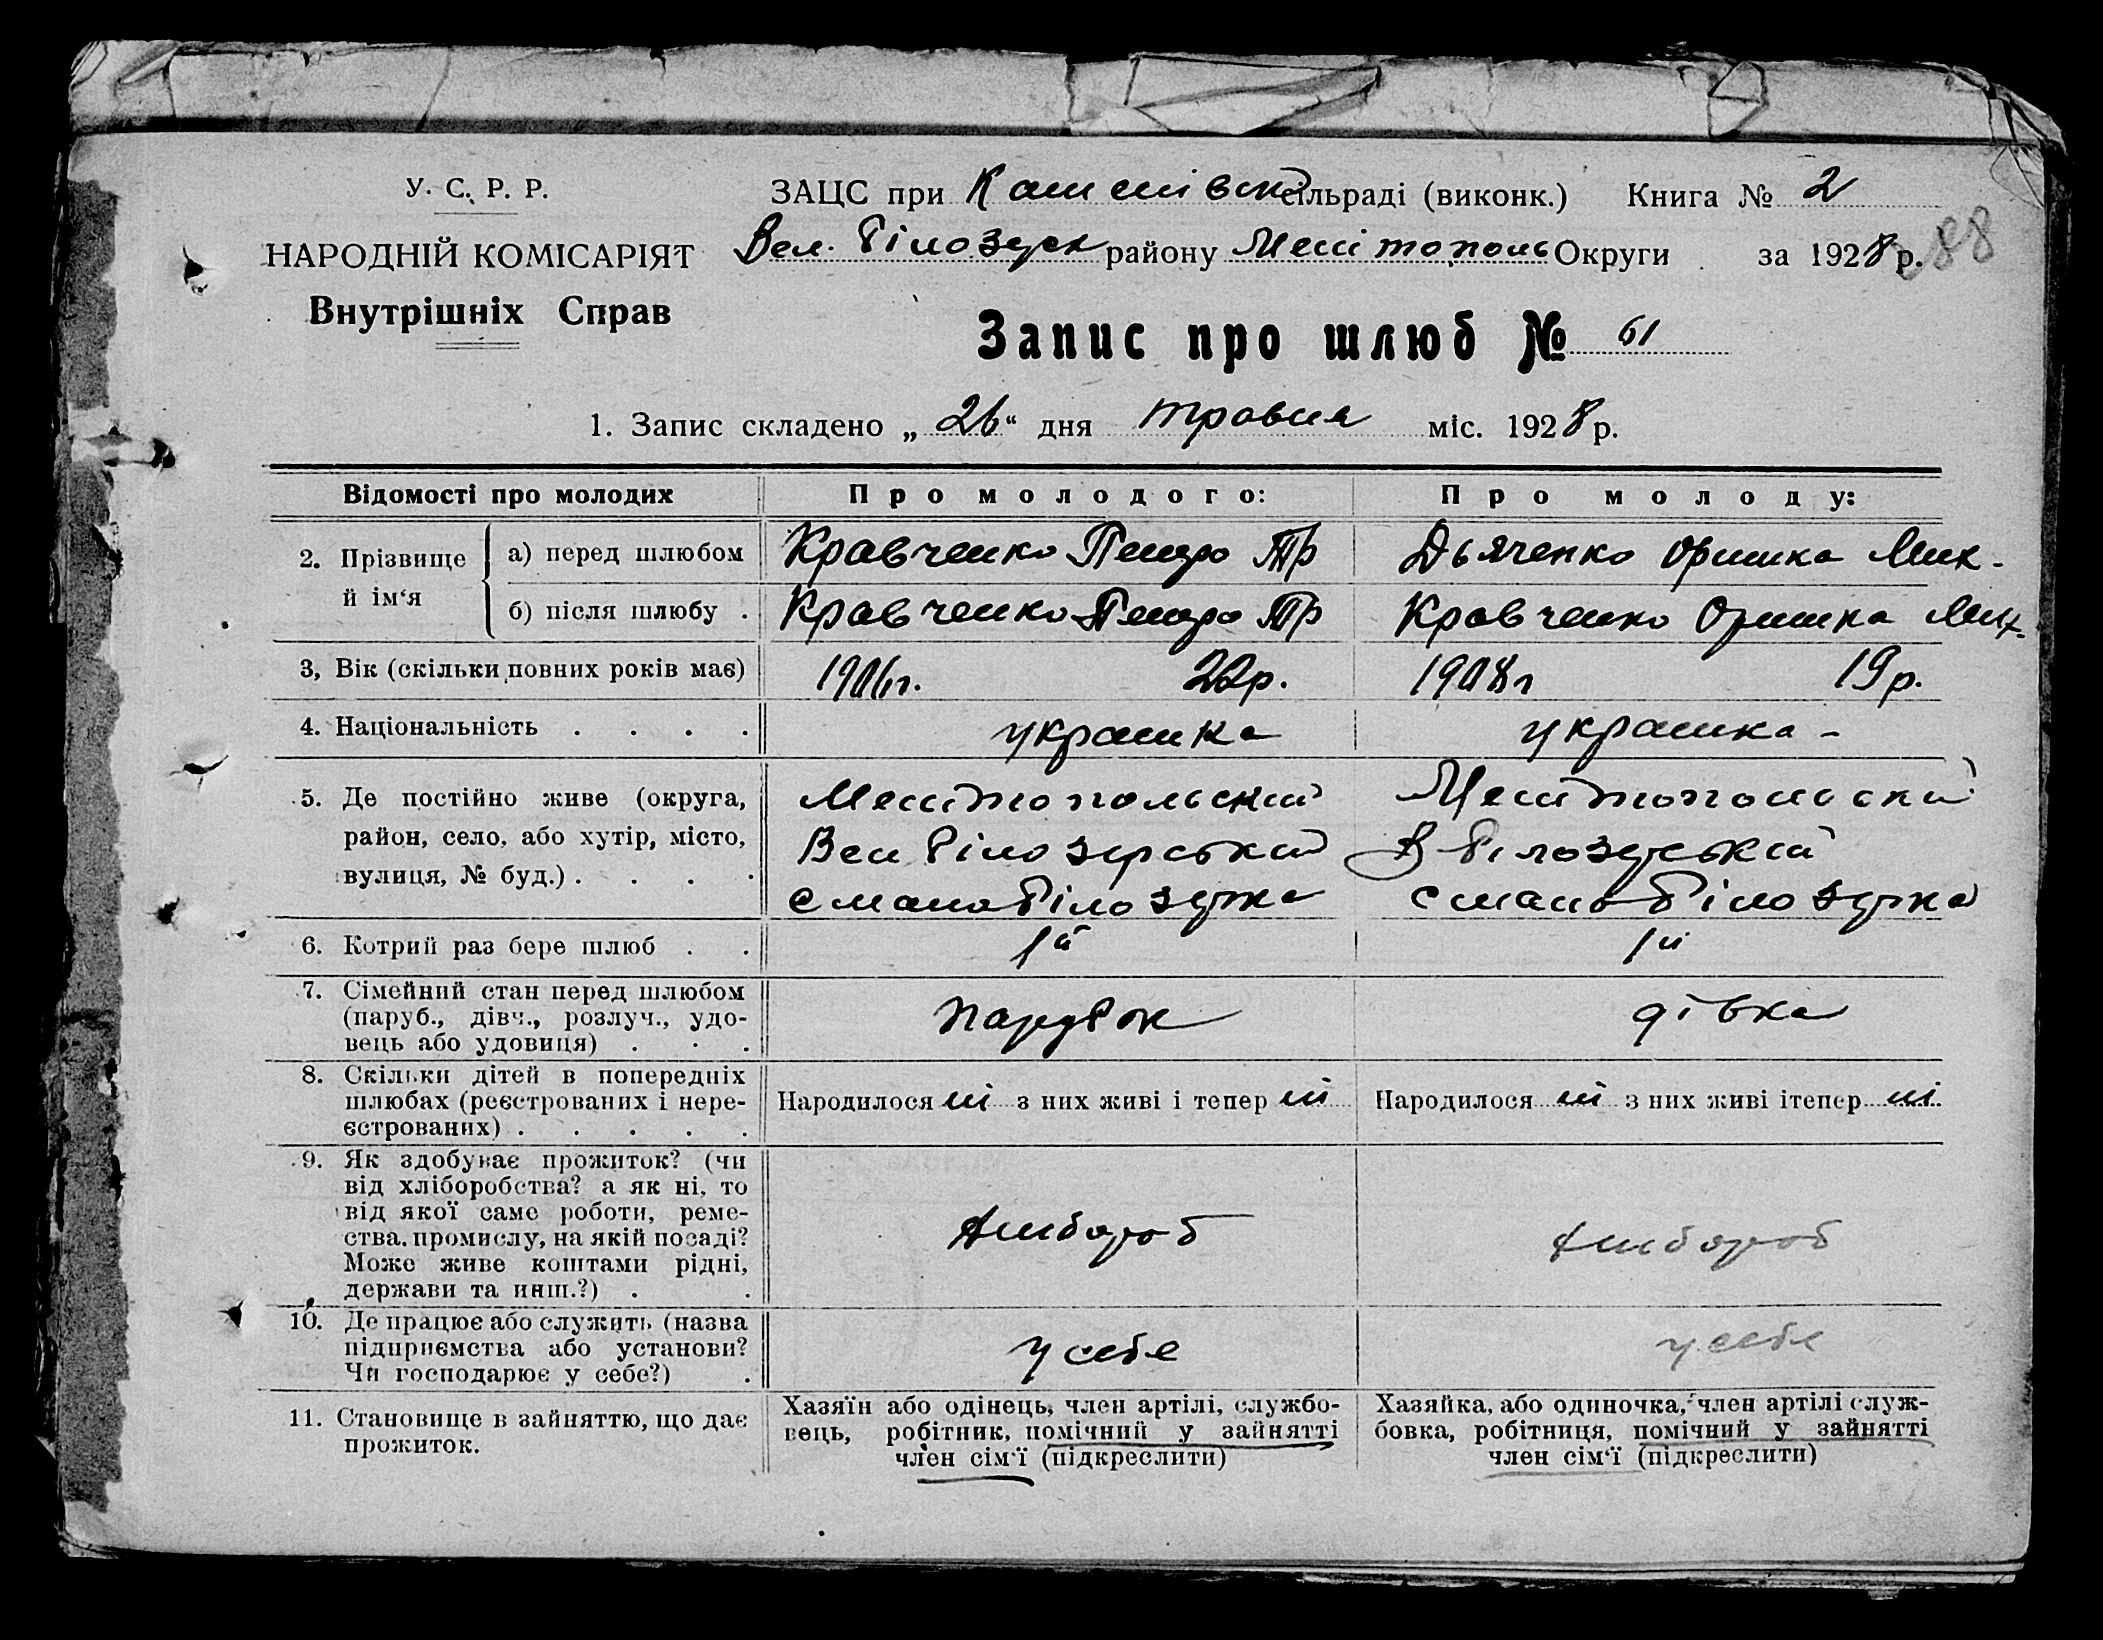 У. С. Р. Р.
НАРОДНІЙ КОМІСАРІЯТ
Внутрішніх Справ
ЗАЦС при сільраді (виконк.) Книга № 2
Вел. Білозерк району Мелітополь Округи за 1928 р.
288
Запис про шлюб № 61
1. Запис складено „26“ дня травня міс. 1928 р.
Відомості про молодих Про молодого: Про молоду:
2. Прізвище й ім‘я
а) перед шлюбом Кравченко Петро Тр Дьяченко Оришка Мик.
б) після шлюбу . Кравченко Петро Тр Кравченко Оришка Мик.
3, Вік (скільки повних років має) 1906 г. 22 р. 1908 г 19 р.
4. Національність . . . . украинка украинка -
5. Де постійно живе (округа,
район, село, або хутір, місто,
вулиця, № буд.) . . . .
Мелітопольский
Вел Білозерський
с мало Білозерка
Мелітопольский
В Білозерській
с мало Білозерка
6. Котрий раз бере шлюб . . 1й 1й
7. Сімейний стан перед шлюбом
(паруб., дівч., розлуч., удо-
вець або удовиця) . . .
парубок дівка
8. Скільки дітей в попередніх
шлюбах (реєстрованих і нере-
єстрованих) . . . . .
Народилося ні з них живі і тепер ні Народилося ні з них живі ітепер ні
9. Як здобуває прожиток? (чи
від хліборобства? а як ні, то
від якої саме роботи, реме-
ства, промислу, на якій посаді?
Може живе коштами рідні,
держави та инш.?) . .
хлібороб хлібороб
10. Де працює або служить (назва
підприємства або установи?
Чи господарює у себе?) .
у себе у себе
11. Становище в зайняттю, що дає
прожиток.
Хазяїн або одінець, член артілі, службо-
вець, робітник, помічний у зайнятті
член сім‘ї (підкреслити)
Хазяйка, або одиночка, член артілі служ-
бовка, робітниця, помічний у зайнятті
член сім‘ї (підкреслити)